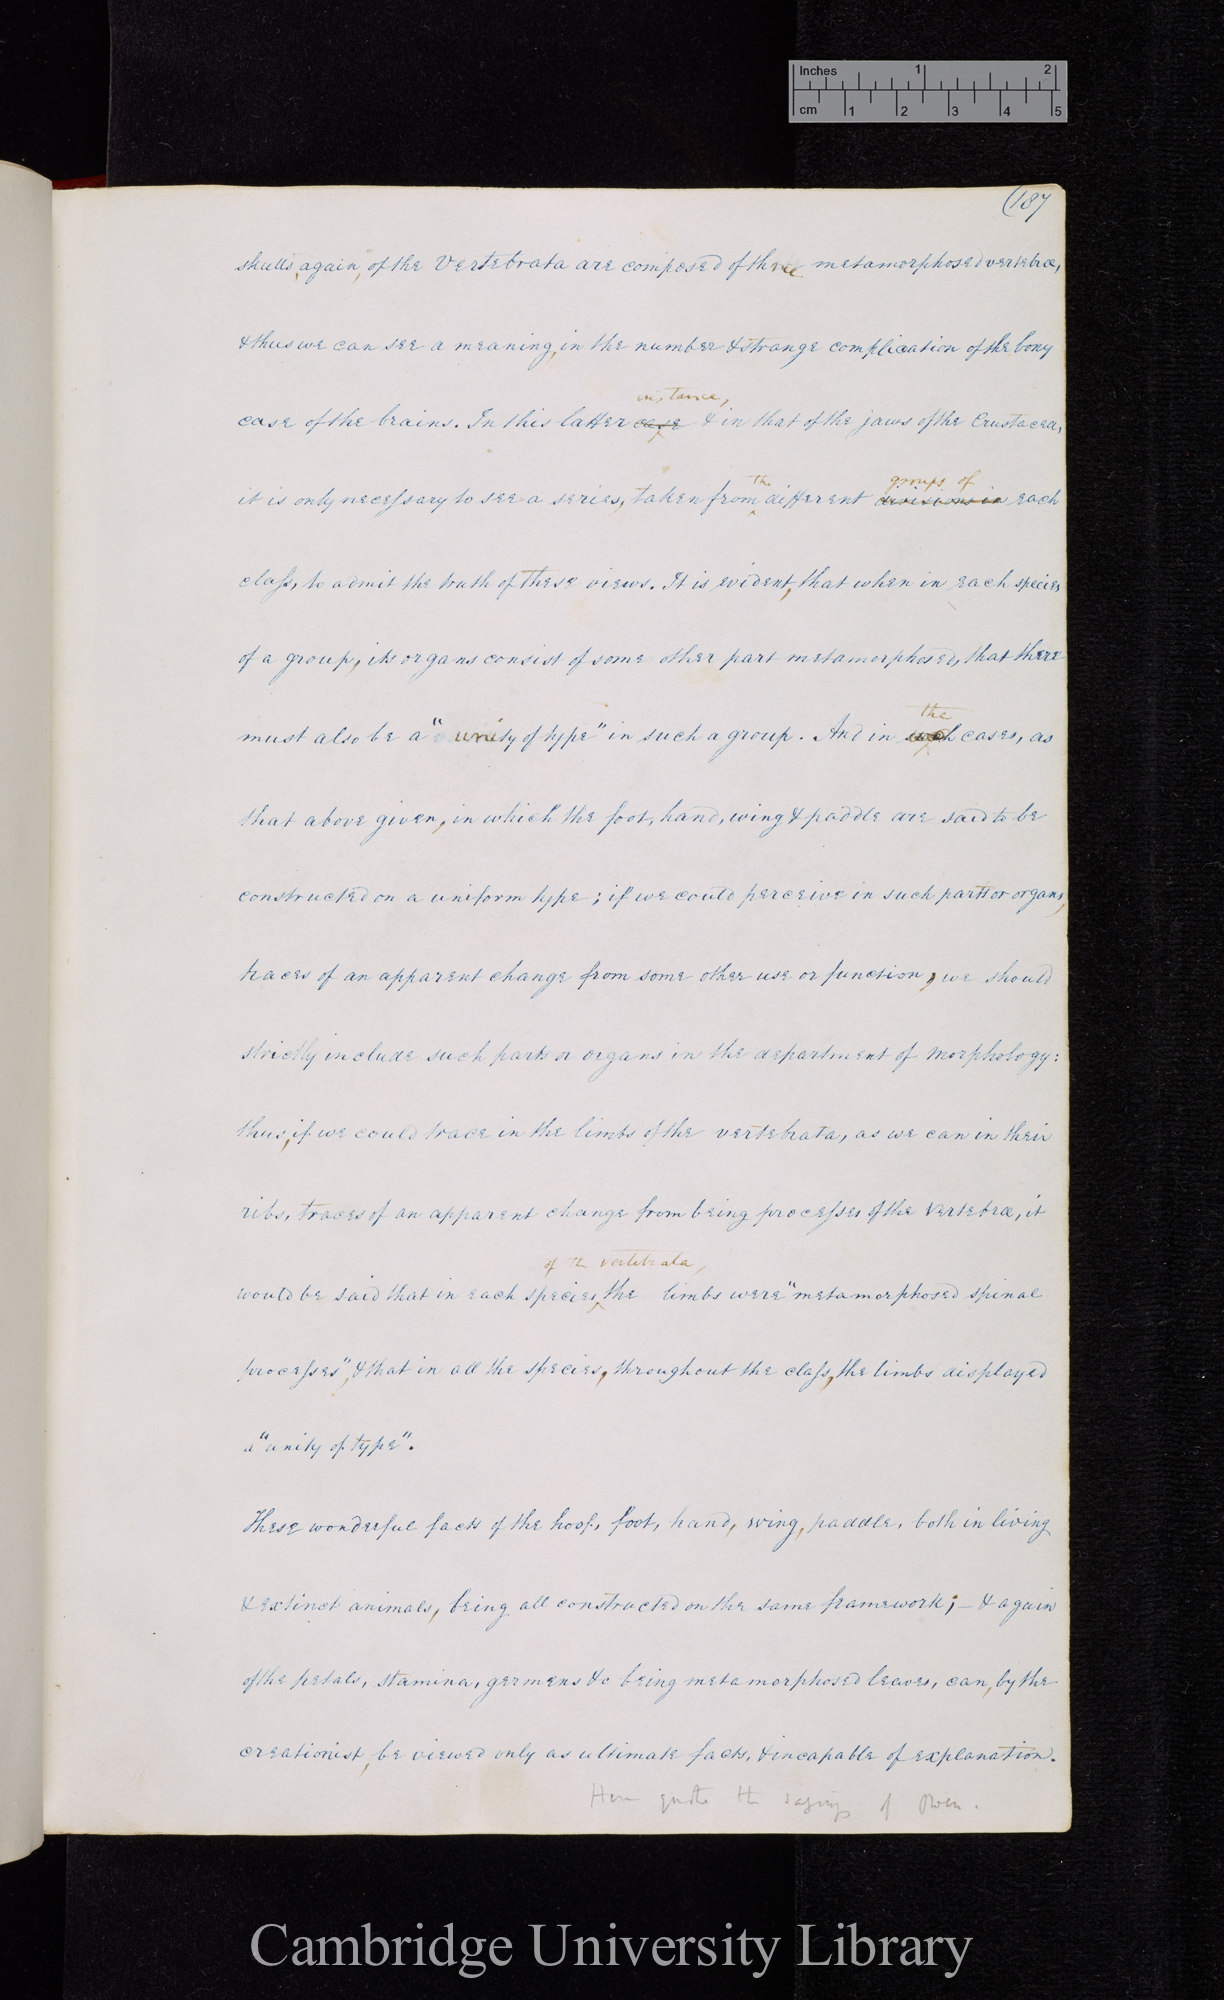 Inches 1 2
cm 1 2 3 4 5
(187
skulls, again, of the Vertebrata are composed of three metamorphosed vertebræ,
& thus we can see a meaning, in the number & strange complication of the bony
instance,
case of the brains. In this latter case & in that of the jaws of the Crustacea,
the groups of
it is only necessary to see a series, taken from different divisions in each
class, to admit the truth of these views. It is evident, that when in each species
of a group, its organs consist of some other part metamorphosed, that there
must also be a "unity of type" in such a group. And in such cases, as
the
that above given, in which the foot, hand, wing & paddle are said to be
constructed on a uniform type; if we could perceive in such parts or organs,
traces of an apparent change from some other use or function, we should
strictly include such parts or organs in the department of morphology:
thus, if we could trace in the limbs of the vertebrata, as we can in their
ribs, traces of an apparent change from being processes of the vertebræ, it
of the vertebrata,
would be said that in each species the limbs were "metamorphosed spinal
processes", & that in all the species, throughout the class, the limbs displayed
a "unity of type".
These wonderful facts of the hoof, foot, hand, wing, paddle, both in living
& extinct animals, being all constructed on the same framework; — & again
of the petals, stamina, germens &c being metamorphosed leaves, can, by the
creationist, be viewed only as ultimate facts, & incapable of explanation.
Here quote the sayings of Owen.
Cambridge University Library